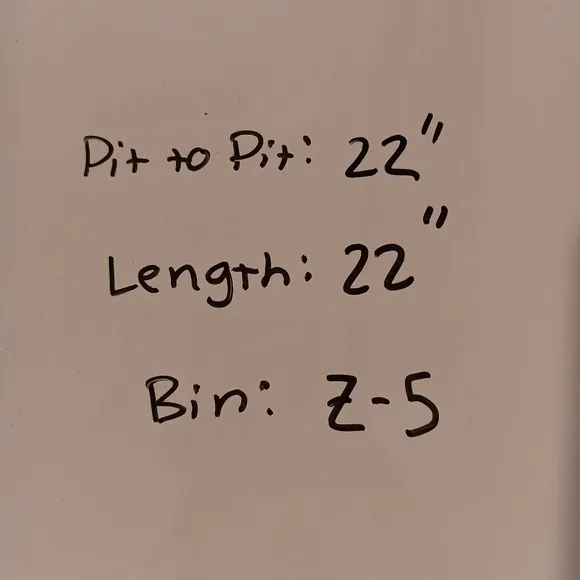 Pit to Pit: 22"
Length: 22"
Bin: Z-5